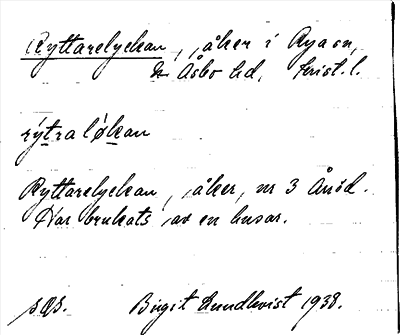 Ryttarelyckan, åker i Rya sn,
N Åsbo hd, Krist. l.
rýtraløkan
Ryttarelyckan, åker, nr 3 Årröd.
Har brukats av en husar.
Birgit Lundkvist 1938.